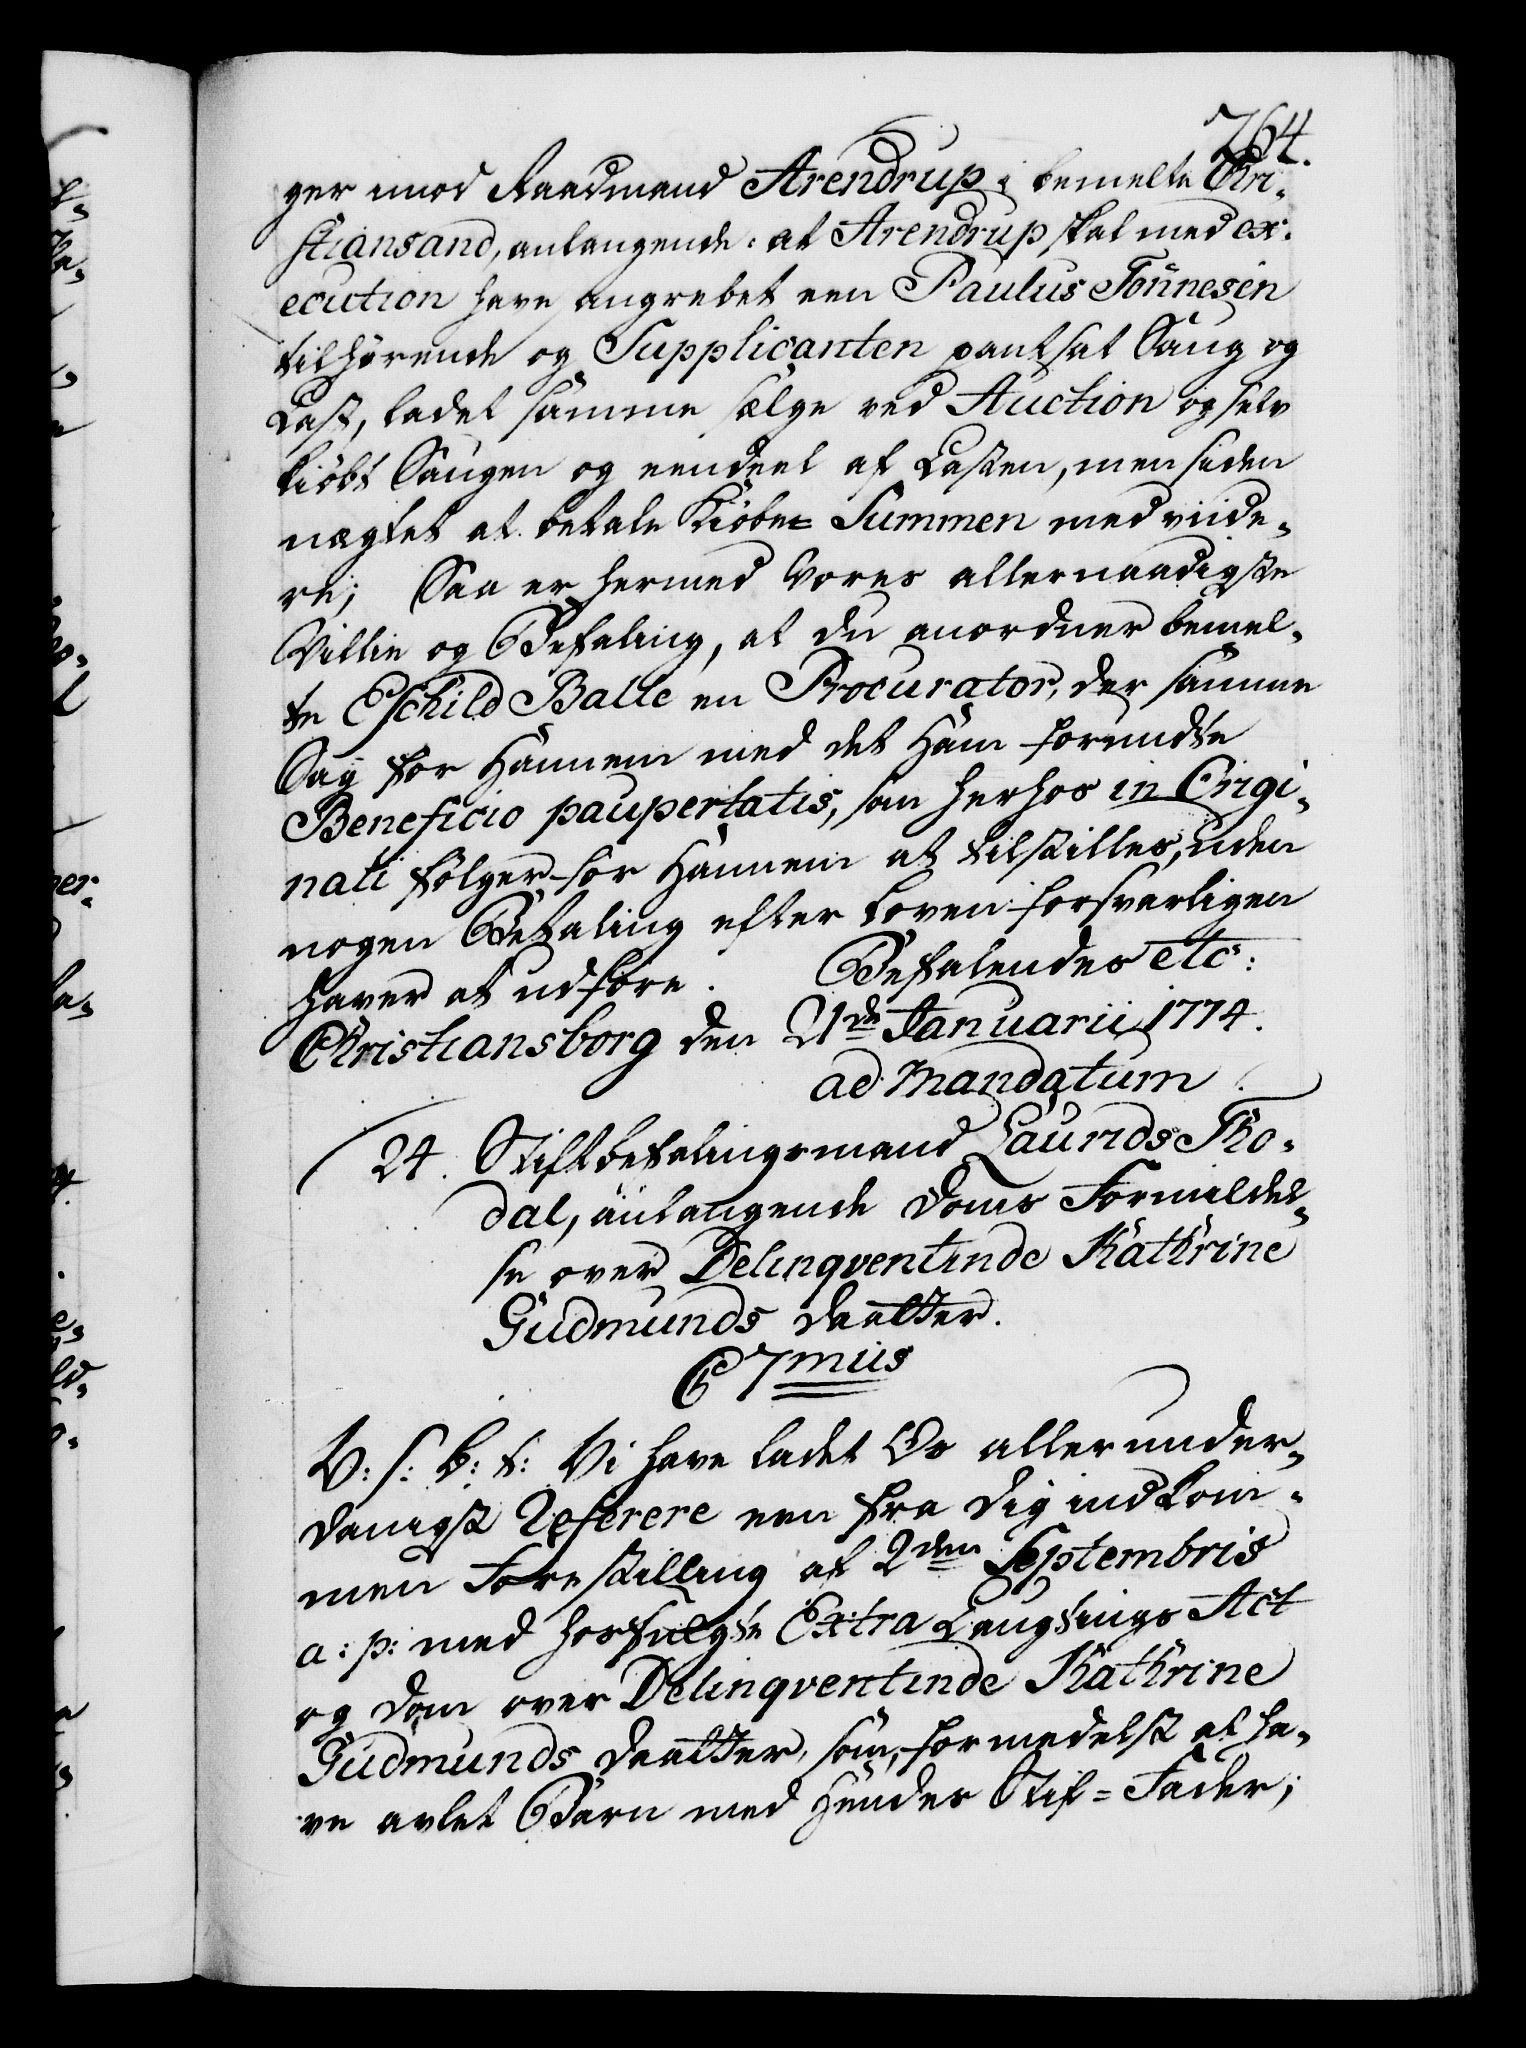 764.
ger imod Raadmand Arendrup i bemelte Chri-
stiansand, anlangende: at Arendrup skal med ex-
ecution have angrebet een Paulus Tönnesen
tilhørende og Supplicanten pantsat Saug og
Last, ladet samme sælge ved Auction og selv
kiöbt Saugen og eendeel af Lasten, men siden
nægtet at betale Kiöbe= Summen med viide-
re; Saa er hermed Vores allernaadigste
Villie og Befaling, at du anordner bemel-
te Eschild Balle en Procurator, der samme
Sag for Hannem med det Ham forundte
Beneficio paupertatis, som herhos in Origi-
nali fölger for Hannem at tilstilles, uden
nogen Betaling efter Loven forsvarligen
haver at udföre. Befalendes etc:
Christiansborg den 21de Januarii 1774.
ad Mandatum
24. Stiftbefalingsmand Laurids Tho-
dal, anlangende Doms Formildel-
se over Delinqventinde Kathrine
Gudmunds Daatter.
C 7mus
V: s: b: t: Vi have ladet Os allerunder-
danigst Referere een fra dig indkom-
men Forestilling af 2den Septembris
a: p: med hosfulgte Extra Laugtings Act
og Dom over Delinqventinde Kathrine
Gudmunds Daatter, som, formedelst at ha-
ve avlet Barn med Hendes Stif= Fader;